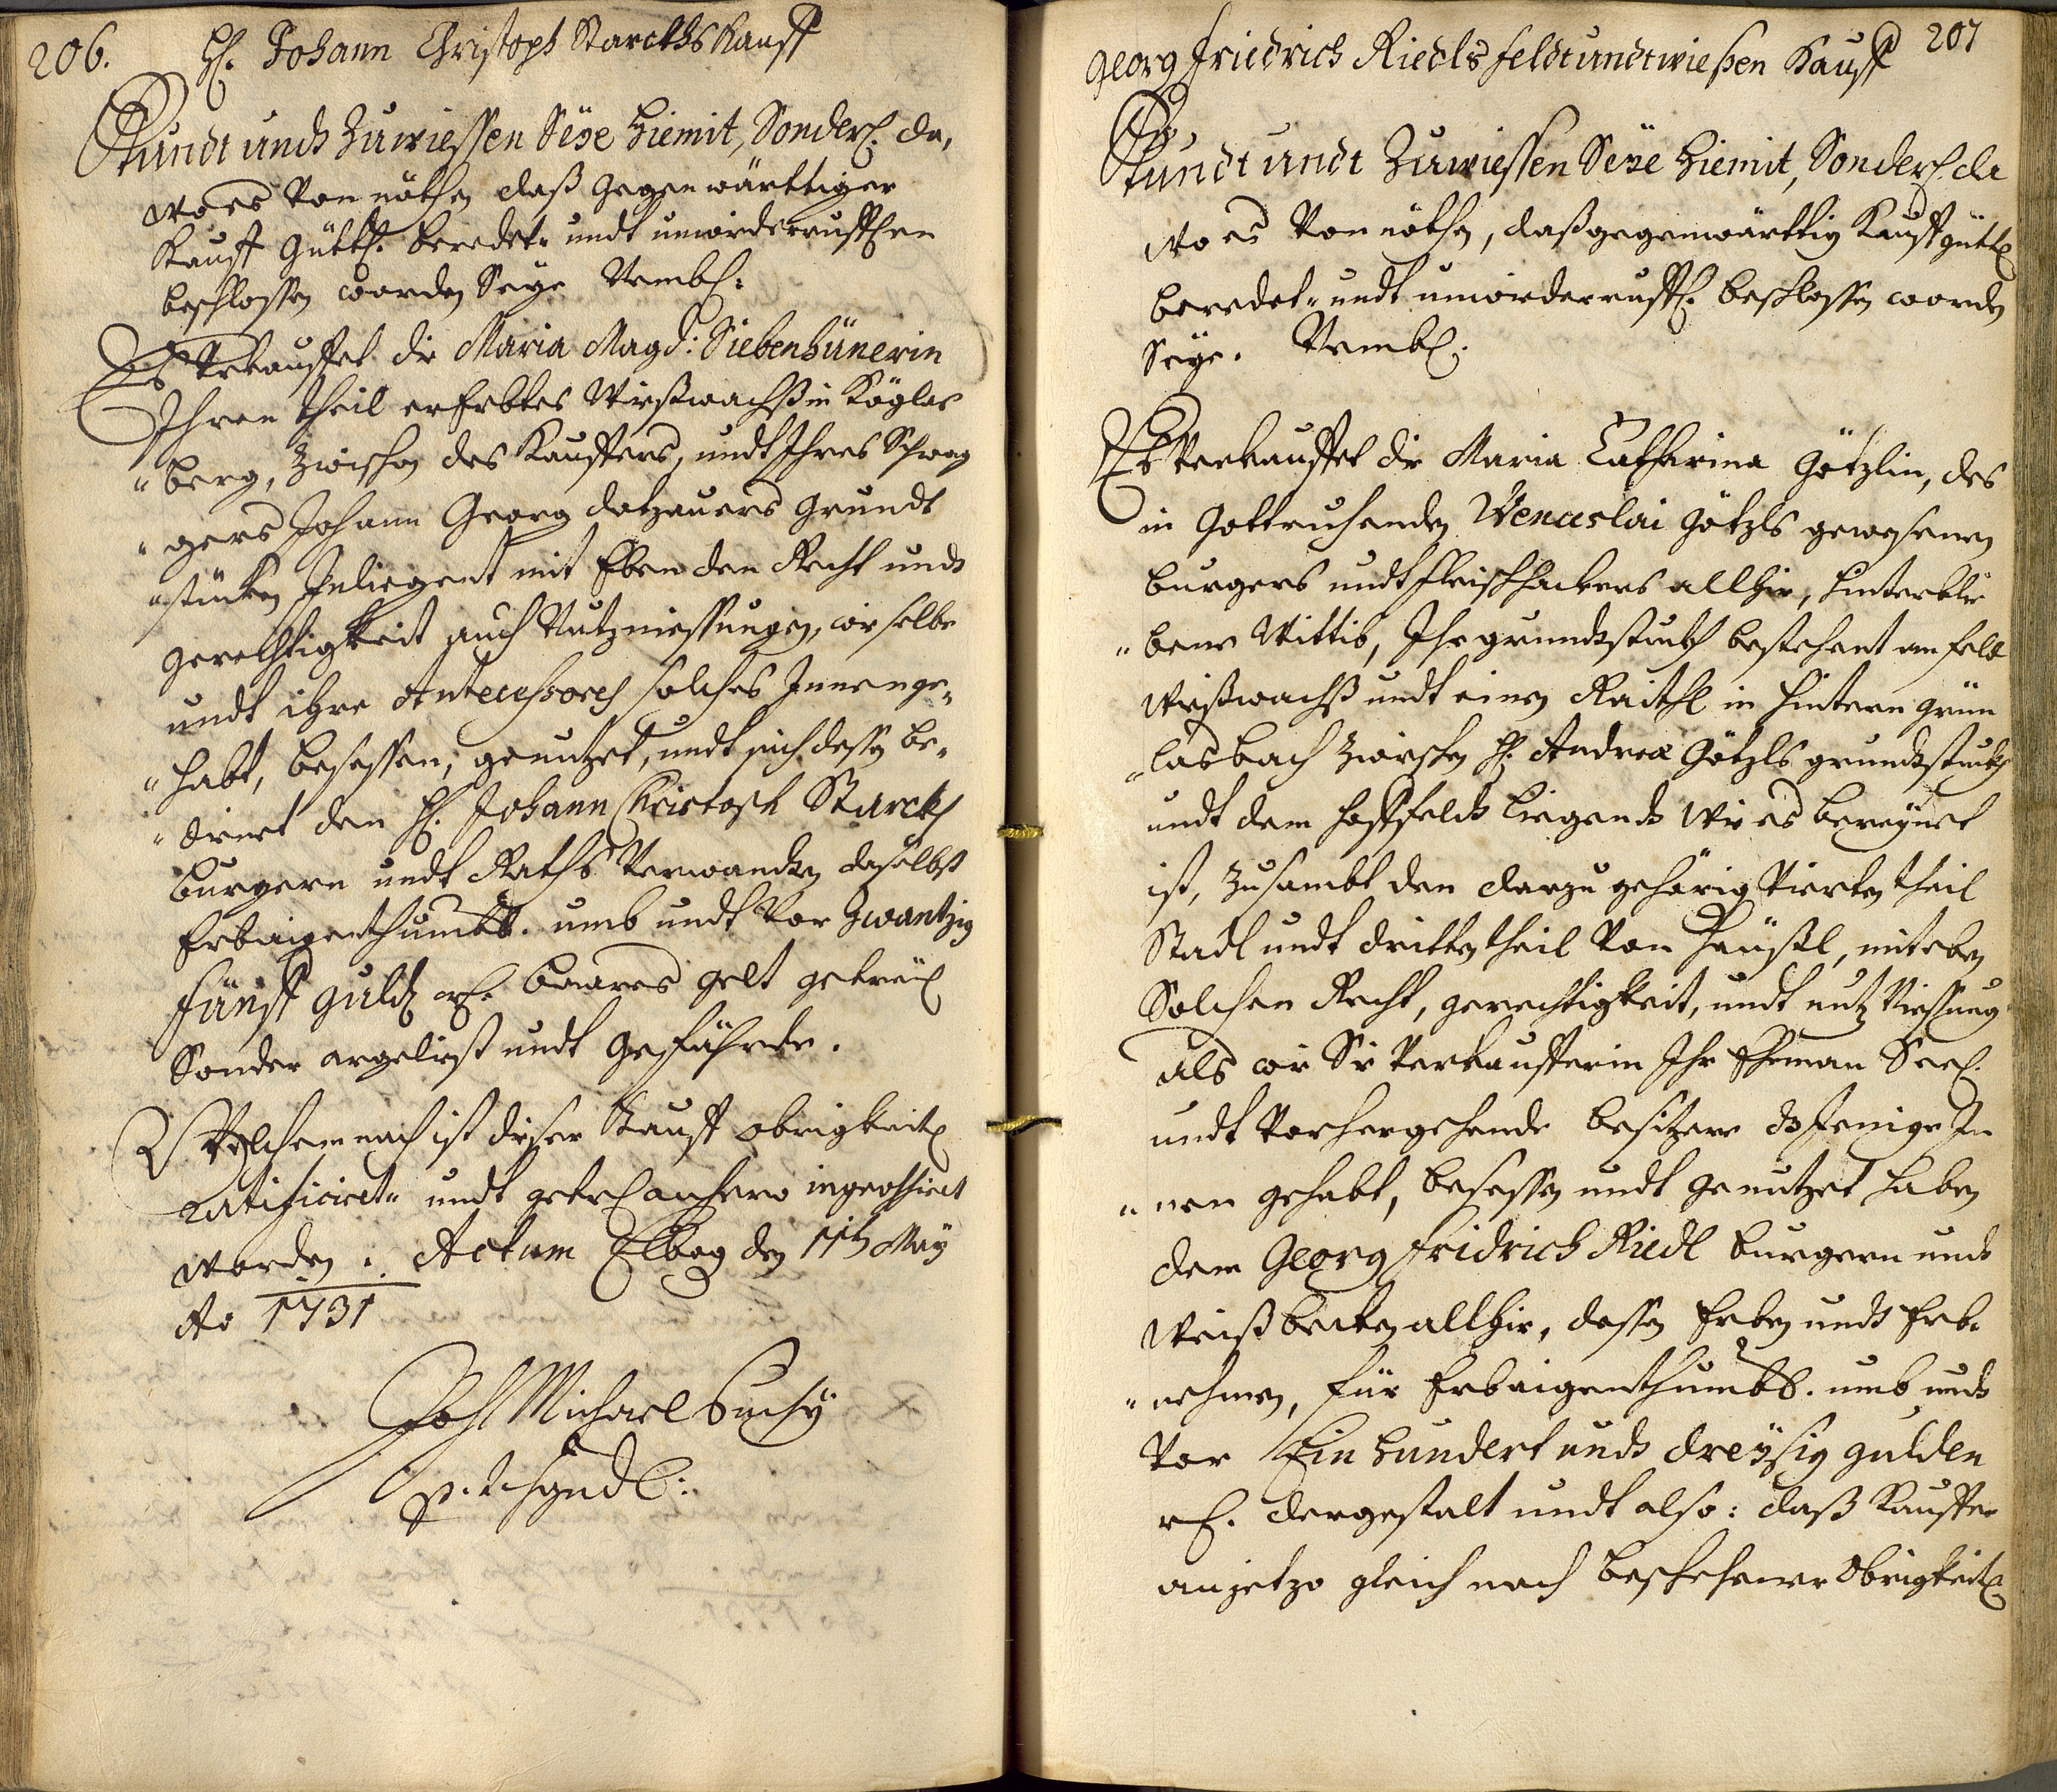 206.
H: Johann Christoph Starckhs Kauff
Kundt undt Zuwiessen Seÿe hiemit, Sonderl: da,
wo es Von nöthen daß gegenwärttiger
Kauff gütl: beredet- undt unwiderruffl:en
beschlossen worden Seye. Nembl:
Es Verkauffet die Maria Magd: Siebenhünerin
Ihren theil ererbtes Wießwachß in Köglas
"berg, zwischen des Kauffers, undt Ihres Schwa
"gers Johann Georg datzauers grundt
"stücken Inliegent mit Eben den Recht undt
gerechtigkeit auch Nutzniessungen, wie selbe
undt ihre Antecessores solches Innenge-
"habt, besessen, genutzet, undt sich dessen be-
"dient dem H: Johann Christoph Starckh
burgern undt Raths Verwandten daselbst
Erbaigenthumbl. umb undt Vor Zwantzig
fünff guld rh: baares gelt getreül
Sonder argeliest undt gefährde.
Welchem nach ist dieser Kauff obrigkeitl
ratificiret- undt getreul anhero ingrossiret
worden. Actum Elbog den 11th May
Ao 1731
Joh Michael Suchÿ
207
Georg Friedrich Riedls feldt undt wießen Kauff
Kundt undt Zuwiessen Seÿe hiemit, Sonderl: da
wo es Von nöthen, daß gegenwärttig Kauff gütl
beredet- undt unwiderruffl: beschlossen worden
Seÿe. Nembl:
Es Verkauffet die Maria Catharina Götzlin, des
in Gott ruhenden Wenceslai Götzls gewesenen
burgers undt fleischhackers allhie, hinterblie
"bene Wittib, Ihr grundtstuckh bestehent am feldt
Wießwachß undt einen Raithl in hintern grün
"lasbach zwischen H: Andreæ Götzls grundtstuckh
undt dem hoffeldt liegendt wie es bereÿnet
ist, Zusambt den darzu gehörig Vierten theil
Stadl undt dritten theil Von häußl, mit eben
Solchen Recht, gerechtigkeit, undt nutzniessung
als wie Sie Verkaufferin Ihr Ehemann Seel:
undt Vorhergehende besitzere dasjenige In
"nen gehabt, besessen undt genutzet haben
dem Georg fridrich Riedl burgern undt
Weißbecken allhie, dessen Erben undt Erb-
"nehmen, für Erbaigenthumbl. umb undt
Vor Ein hundert undt dreÿsig gulden
rh: dergestalt undt also: daß Kauffer
anjetzo gleich nach beschehener Obrigkeitl